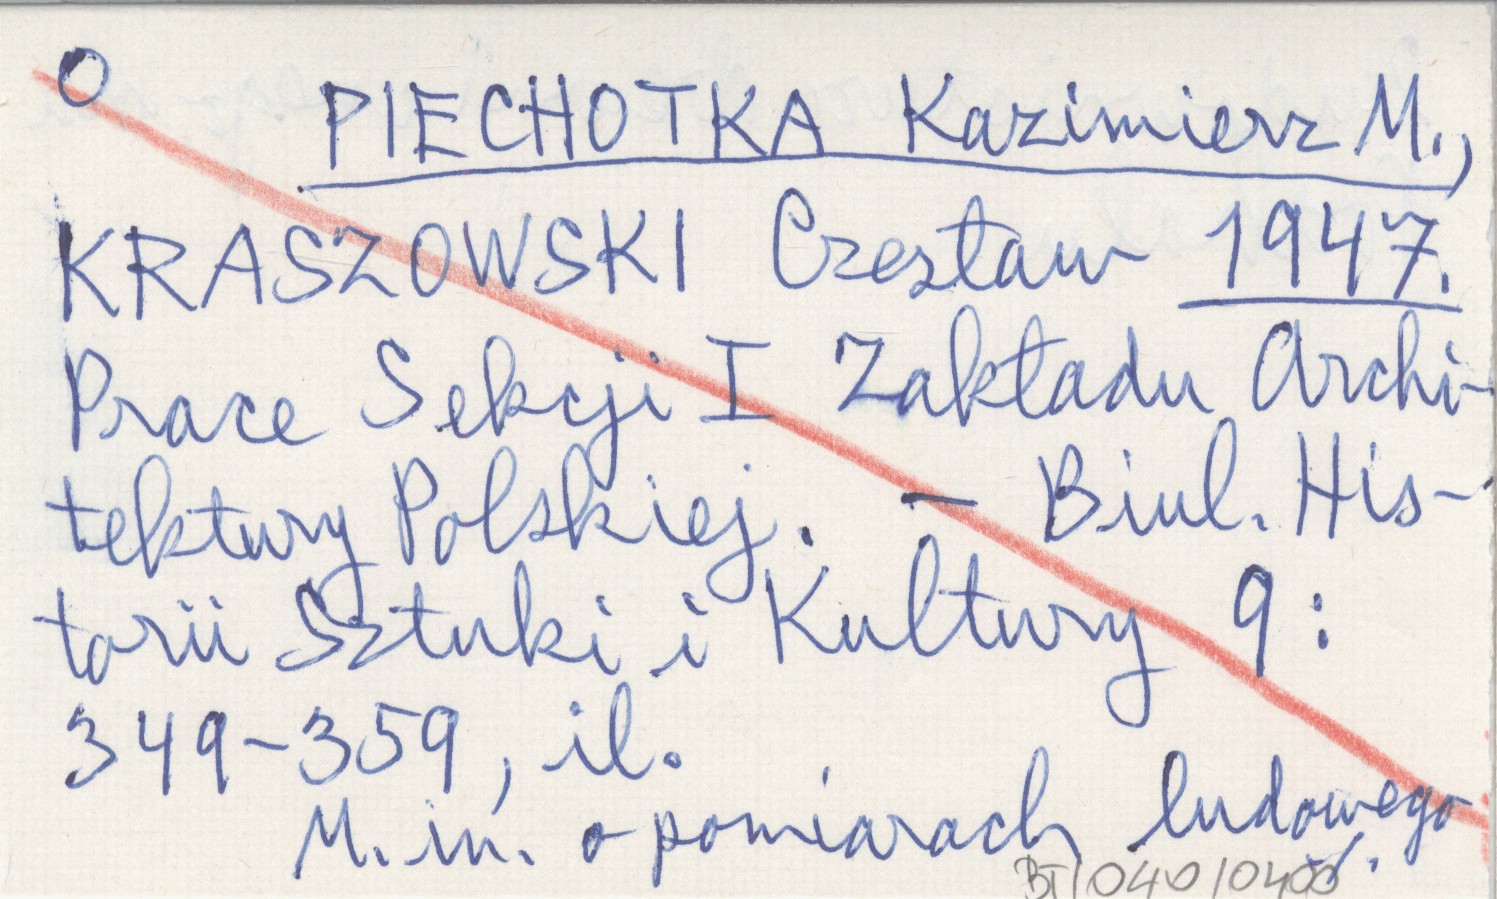 O
PIECHOTKA Kazimierz M.,
KRASZOWSKI Czesław 1947.
Prace Sekcji I Zakładu Archi-
tektury Polskiej. — Biul. His-
torii Sztuki i Kultury 9:
349-359, il.
M. in. o pomiarach ludowego
BT/040/0400